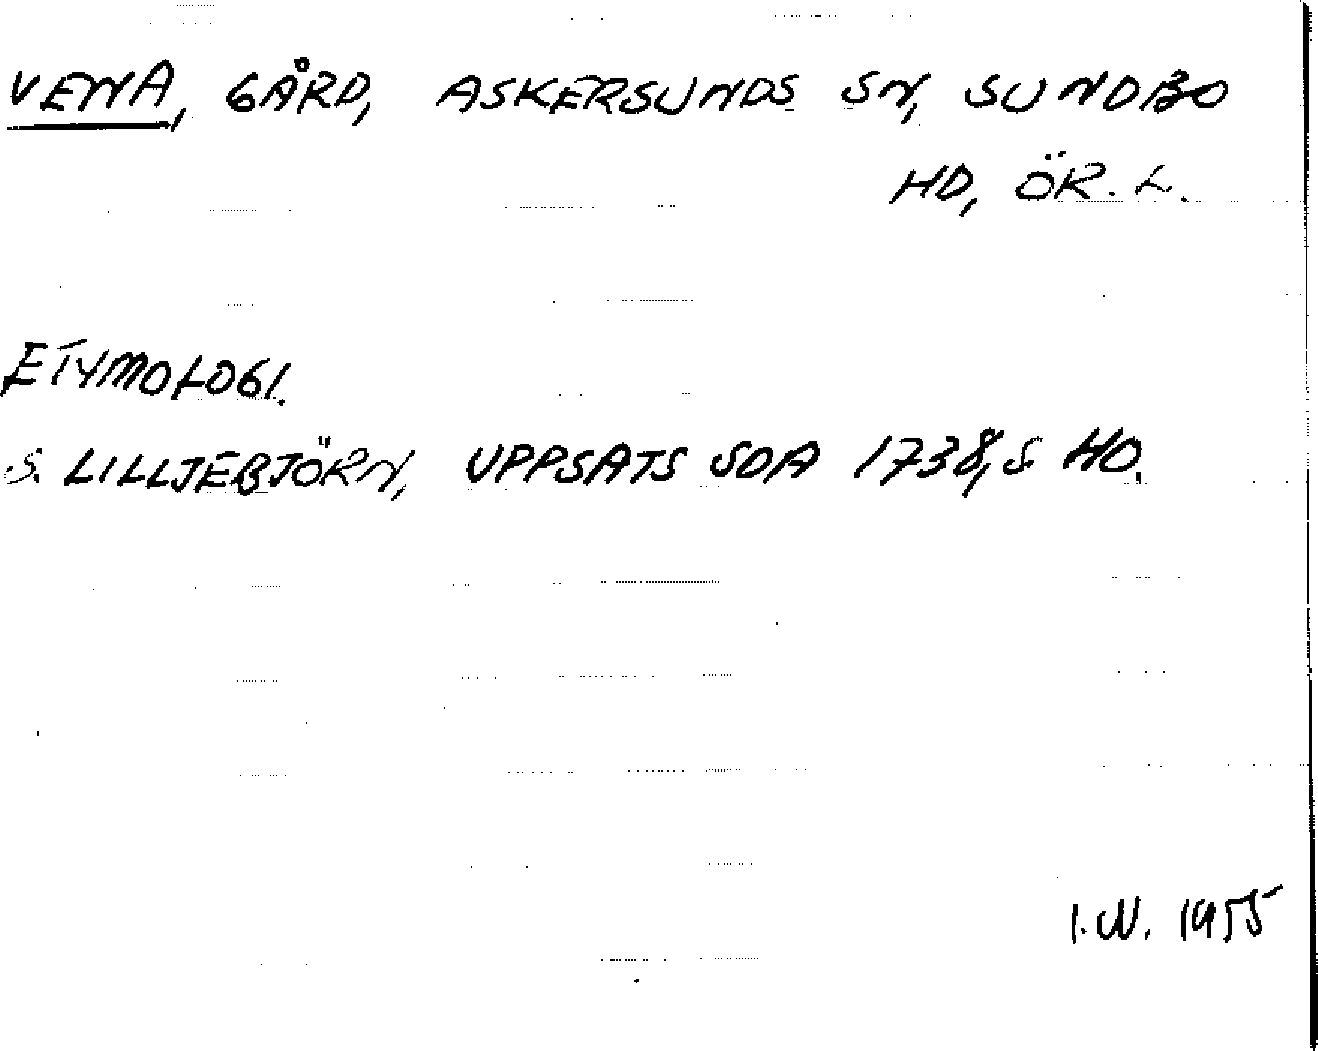 VENA, GÅRD, ASKERSUNDS SN, SUNDBO
HD, ÖR. L.
ETYMOLOGI.
S. LILLJEBJÖRN, UPPSATS SOA 1738, S 40.
I.W. 1955